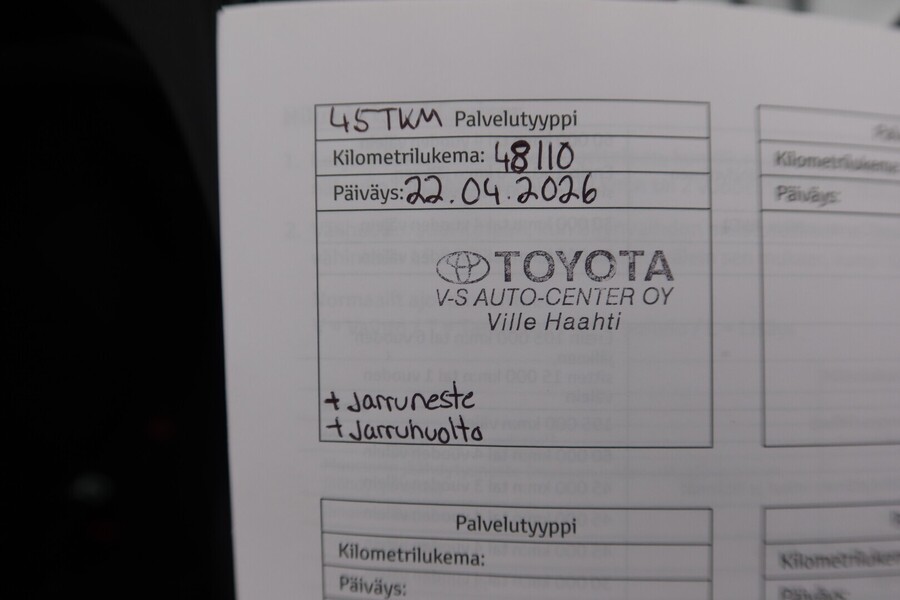 45TKM Palvelutyyppi
Kilometrilukema: 48110
Päiväys: 22.04.2026
TOYOTA
V-S AUTO-CENTER OY
Ville Haahti
+ Jarruneste
+ Jarruhuolto
Kilometrilukema:
Päiväys:
Palvelutyyppi
Kilometrilukema:
Päiväys:
Kilometrilukema
Päiväys: